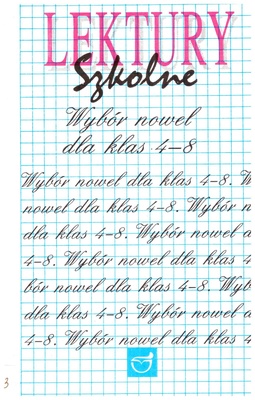 LEKTURY
Szkolne
Wybór nowel
dla klas 4-8
Wybór nowel dla klas 4-8. W
nowel dla klas 4-8. Wybór n
dla klas 4-8. Wybór nowel d
4-8. Wybór nowel dla klas 4
bór nowel dla klas 4-8. Wy
dla klas 4-8. Wybór nowel d
4-8. Wybór nowel dla klas 4
3